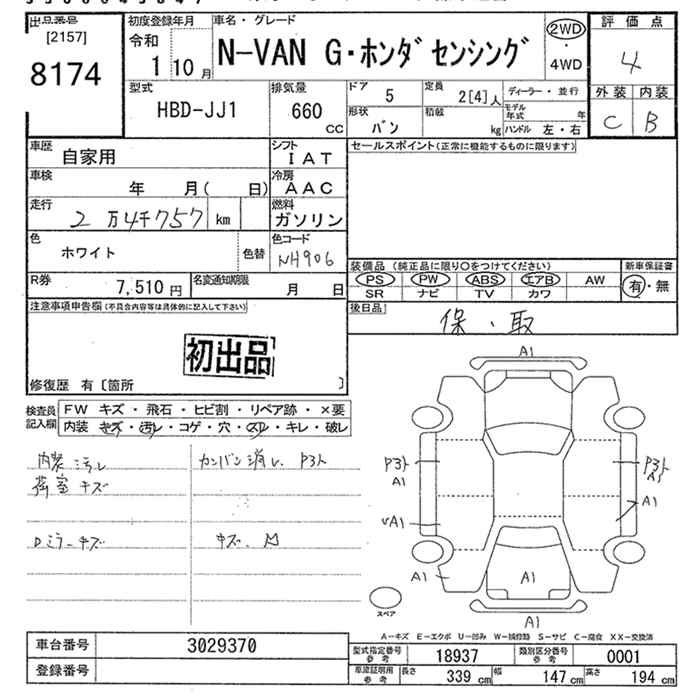 出品番号
[2157]
8174
初度登録年月
令和
1 10月
車名・グレード
N-VAN G・ホンダセンシング
2WD
・
4WD
評価点
4
外装 内装
C B
型式
HBD-JJ1
排気量
660
CC
ドア
5
定員
2[4]人
ディーラー・並行
形状
バン
積載
kg
モデル年式
年
ハンドル 左・右
車歴
自家用
シフト
IAT
車検
年 月( 日)
冷房
AAC
走行
2万4千757 km
燃料
ガソリン
色
ホワイト
色替
色コード
NH906
R券
7,510円
名変通知期限
月 日
セールスポイント(正常に機能するものに限ります)
装備品 (純正品に限り○をつけてください)
新車保証書
PS PW ABS エアB AW
SR ナビ TV カワ
有・無
後日品
保・取
注意事項申告欄(不具合内容等は具体的に記入して下さい)
初出品
修復歴 有〔箇所 〕
検査員
記入欄
FW キズ・飛石・ヒビ割・リペア跡・×要
内装 キズ・汚レ・コゲ・穴・スレ・キレ・破レ
内装汚レ
荷室キズ
Dミラーキズ
カンバン消し、P3ト
キズ、凹
A1
P3ト
A1
P3ト
A1
A1
A1
A1
A1
A1
スペア
A-キズ E-エクボ U-凹み W-補修跡 S-サビ C-腐食 XX-交換済
車台番号
3029370
登録番号
型式指定番号
参考
18937
類別区分番号
参考
0001
車庫証明用
参考
長さ
339 cm
幅
147 cm
高さ
194 cm